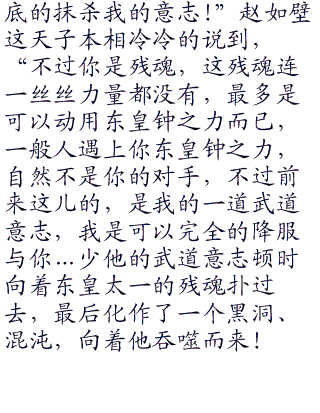 底的抹杀我的意志！”赵如壁
这天子本相冷冷的说到，
“不过你是残魂，这残魂连
一丝丝力量都没有，最多是
可以动用东皇钟之力而已，
一般人遇上你东皇钟之力，
自然不是你的对手，不过前
来这儿的，是我的一道武道
意志，我是可以完全的降服
与你…少他的武道意志顿时
向着东皇太一的残魂扑过
去，最后化作了一个黑洞、
混沌，向着他吞噬而来！